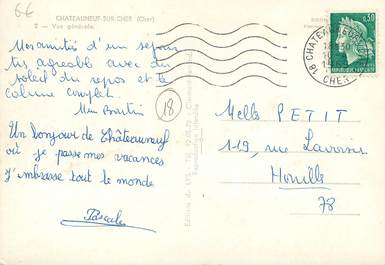 6€
CHATEAUNEUF-SUR-CHER (Cher)
2 - Vue générale.
0,30
18 CHATEAUNEUF
CHER
Mes amitiés d'un séjour
très agréable avec du
soleil du repos et le
calme complet.
Mme
18
Un bonjour de Châteauneuf
où je passe mes vacances
J'embrasse tout le monde
Pascale
Melle PETIT
119, rue
Houille
78